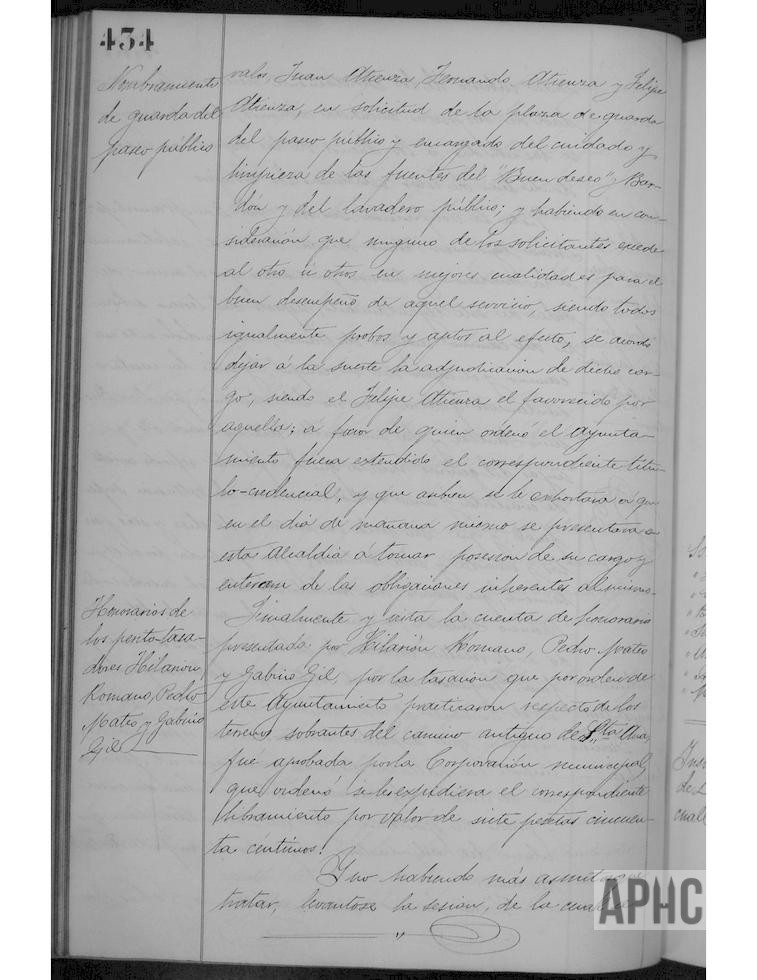 434
Nombramiento
de guarda del
paseo público
valos, Juan Atienza, Fernando Atienza y Felipe
Atienza, en solicitud de la plaza de guarda
del paseo público y encargado del cuidado y
limpieza de las fuentes del "Buen deseo" y Bar-
dón y del lavadero público; y habiendo en con-
sideración que ninguno de los solicitantes excede
al otro ú otros en mejores cualidades para el
buen desempeño de aquel servicio, siendo todos
igualmente probos y aptos al efecto, se acordó
dejar á la suerte la adjudicación de dicho car-
go, siendo el Felipe Atienza el favorecido por
aquella; a favor de quien ordenó el Ayunta-
miento fuera extendido el correspondiente títu-
lo-credencial, y que se le exhortara a que
en el dia de mañana mismo se presentara en
esta Alcaldia á tomar posesion de su cargo y
de las obligaciones inherentes al mismo.
Honorarios de
los perito-tasa-
dores Hilarion
Romano, Pedro
Mateo y Gabino
Gil
Finalmente y vista la cuenta de honorarios
presentada por Hilarión Romano, Pedro Mateo
y Gabino Gil, por la tasación que por orden de
este Ayuntamiento practicaron respecto de los
terrenos sobrantes del camino antiguo de Sta Ana,
fue aprobada por la Corporación municipal,
que ordenó se les expidiera el correspondiente
libramiento por valor de siete pesetas cincuen-
ta céntimos.
Y no habiendo más asuntos de
tratar, levantose la sesión, de la cual
APHC